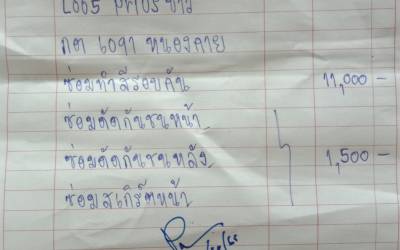 กต 6091 หนองคาย
ซ่อมทำสีรอบคัน 11,000 -
ซ่อมตัดกันชนหน้า
ซ่อมตัดกันชนหลัง 1,500 -
ซ่อมสเกิร์ตหน้า